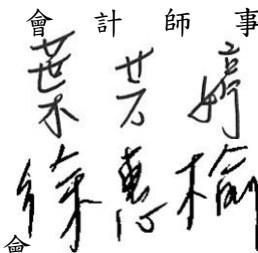 會計師事
葉芳婷
徐惠榆
會